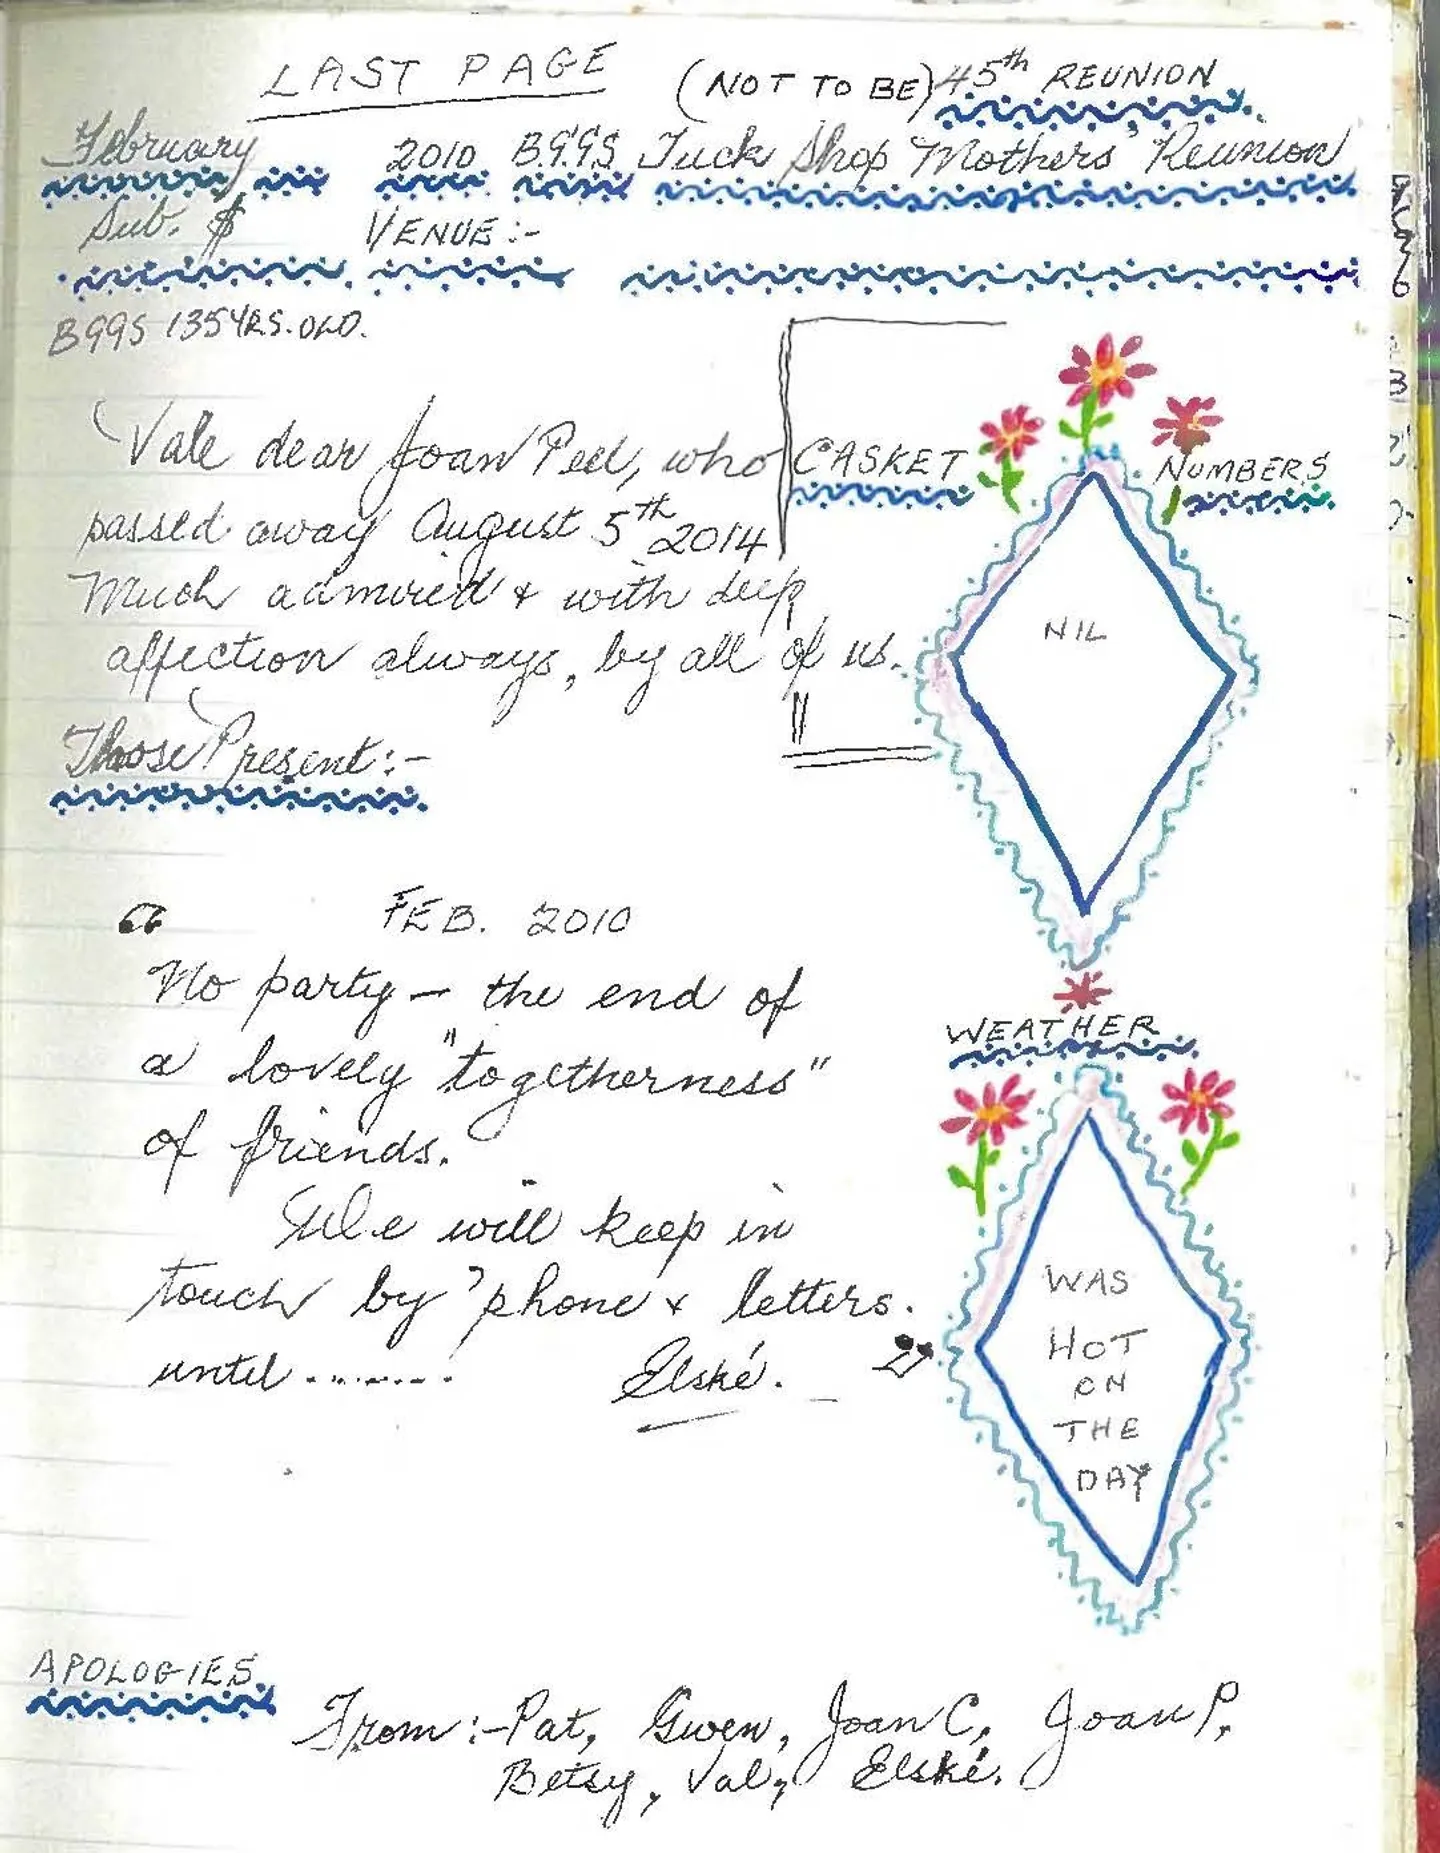 LAST PAGE (NOT TO BE) 45th REUNION
February 2010 BGGS Tuck Shop Mothers' Reunion
Sub. $ VENUE:-
BGGS 135 YRS. OLD.
Vale dear Joan Peel, who
passed away August 5th 2014
Much admired & with deep
affection always, by all of us.
CASKET NUMBERS
NIL
Those Present:-
" FEB. 2010
No party – the end of
a lovely "togetherness"
of friends.
We will keep in
touch by 'phone & letters.
until ........ Elské. "
WEATHER
WAS
HOT
ON
THE
DAY
APOLOGIES
From:- Pat, Gwen, Joan C, Joan P,
Betsy, Val, Elské.